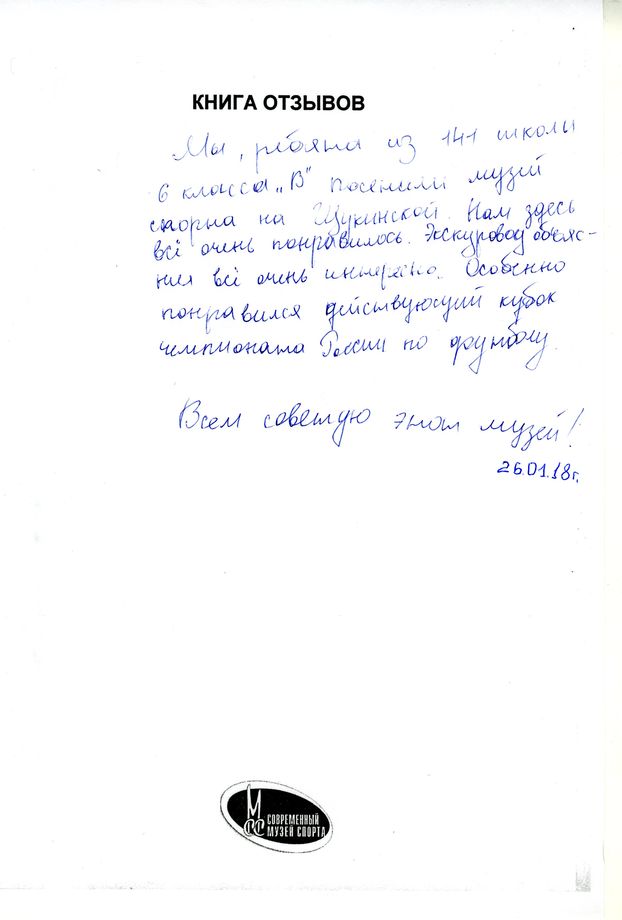 КНИГА ОТЗЫВОВ
Мы, ребята из 141 школы
6 класса „В" посетили музей
спорта на Щукинской. Нам здесь
всё очень понравилось. Экскуровод объяс-
нил всё очень интересно. Особенно
понравился действующий кубок
чемпионата России по футболу.
Всем советую этот музей!
26.01.18г.
МСС СОВРЕМЕННЫЙ
МУЗЕЙ СПОРТА